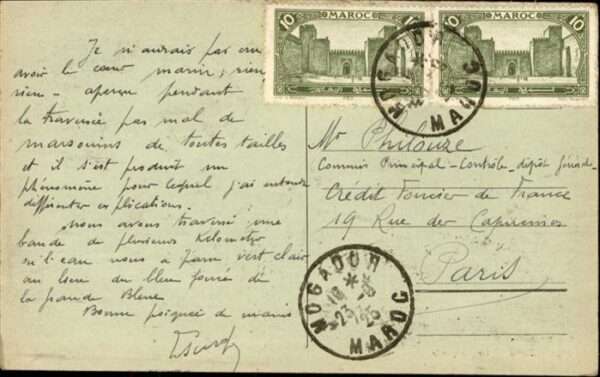 Je n'aurais pas cru
avoir le cœur marin, rien
rien - aperçu pendant
la traversée pas mal de
marsouins de toutes tailles
et il s'est produit un
phénomène pour lequel j'ai entendu
différentes explications.
Nous avons traversé une
bande de plusieurs kilomètres
où l'eau nous a paru vert clair
au lieu du bleu foncé de
la grande Bleue
Bonne poignée de mains
10 MAROC 10
10 MAROC 10
MOGADOR
MAROC
Mr Philouze
Commis Principal - Contrôle - dépôt
Crédit Foncier de France
19 Rue des Capucines
Paris
MOGADOR
23 -8
25
MAROC